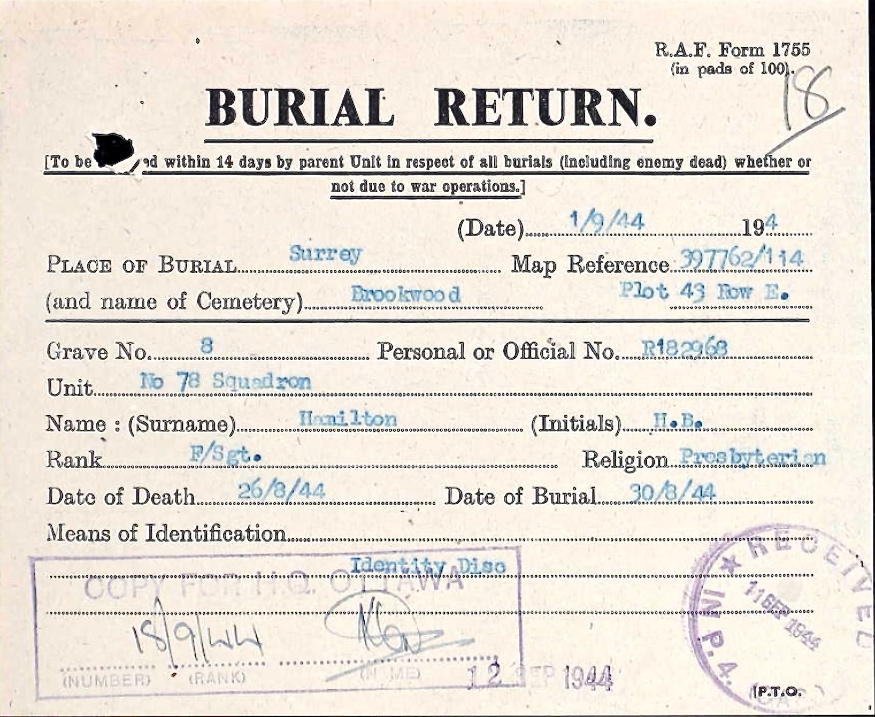 R.A.F. Form 1755
(in pads of 100).
18
BURIAL RETURN.
[To be ed within 14 days by parent Unit in respect of all burials (including enemy dead) whether or
not due to war operations.]
(Date) 1/9/44 1944
PLACE OF BURIAL Surrey Map Reference 397762/114
(and name of Cemetery) Brookwood Plot 43 Row E.
Grave No. 8 Personal or Official No. R182968
Unit No 78 Squadron
Name : (Surname) Hamilton (Initials) H.B.
Rank F/Sgt. Religion Presbyterian
Date of Death 26/8/44 Date of Burial 30/8/44
Means of Identification
Identity Disc
COPY FOR H.Q. OTTAWA
18/9/44
(NUMBER) (RANK) (NAME)
12 SEP 1944
RECEIVED
11 SEP 1944
P.4.
(P.T.O.